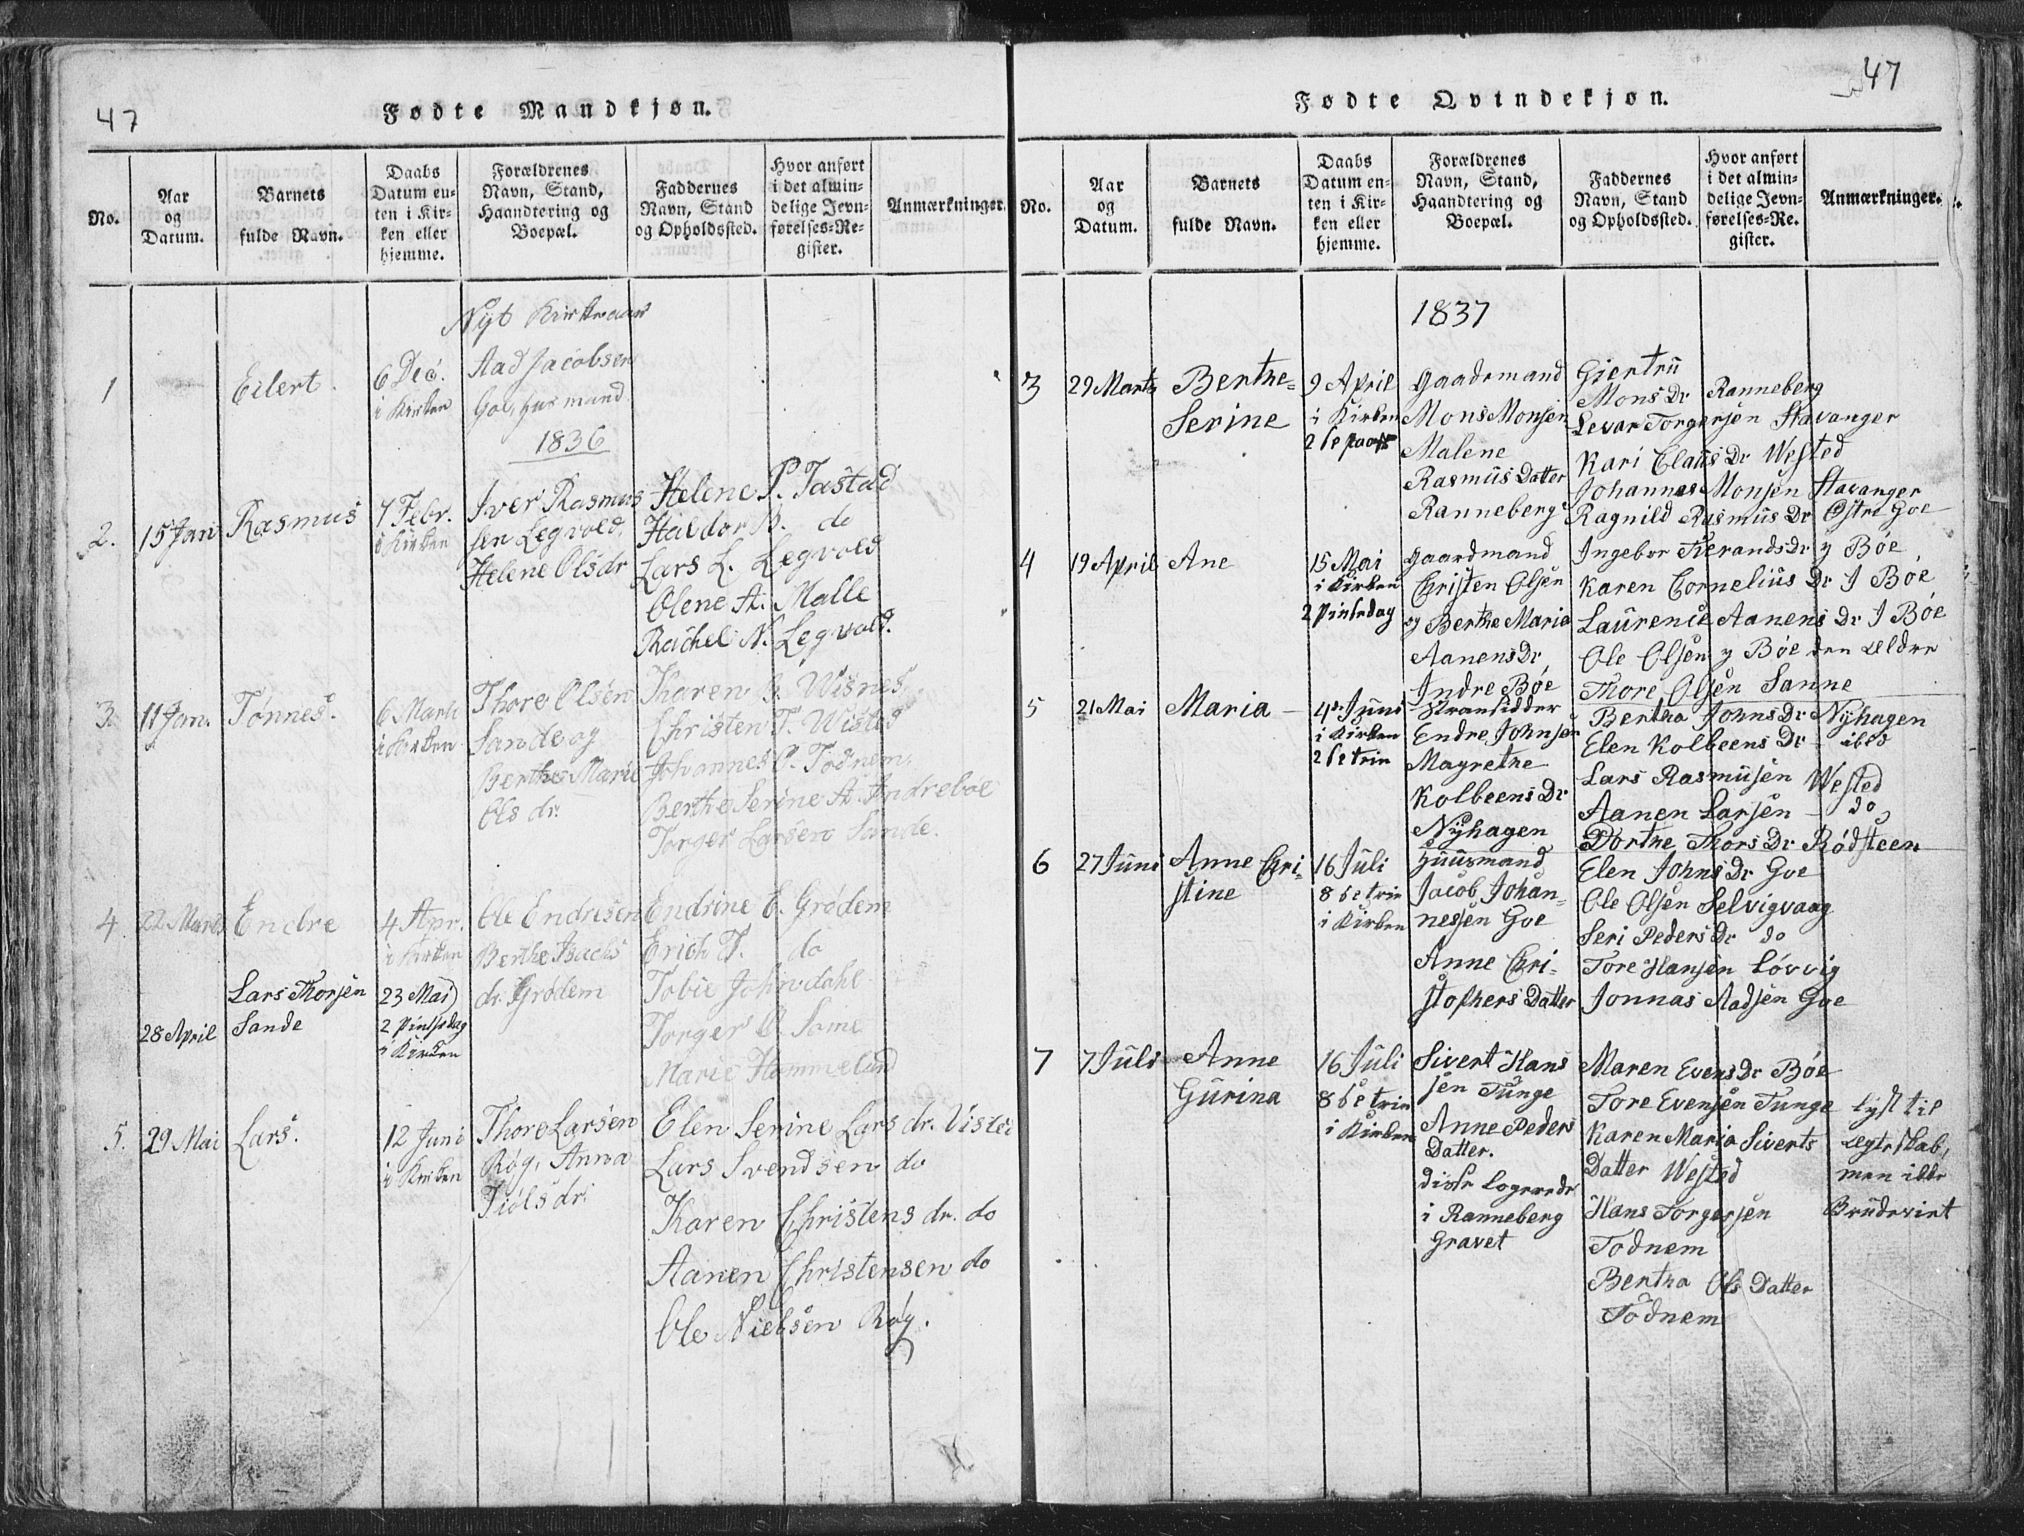 47
Fødte Mandkjøn.
No.
Aar
og
Datum.
Barnets
fulde Navn.
Daabs
Datum en-
ten i Kir-
ken eller
hjemme.
Forældrenes
Navn, Stand,
Haandtering og
Boepæl.
Faddernes
Navn, Stand
og Opholdssted.
Hvor anført
i det almin-
delige Jevn-
førelses-Re-
gister.
Anmærkninger.
Nyt Kirkeaar
1
Eilert.
6 Dec.
i Kirken
Aad Jacobsen
Goe, husmand
1836
2.
15 Jan
Rasmus
7 Febr.
i Kirken
Iver Rasmus
sen Legvold,
Helene Olsdr
Helene P. Tastad
Haldor B. do
Lars L. Legvold
Olene A. Malle
Rachel N. Legvold.
3.
11 Jan.
Tønnes.
6 Marti
i Kirken
Thore Olsen
Sande og
Berthe Marie
Ols dr.
Karen A. Wisnes
Christen T. Wisted
Johannes P. Todnem,
Berthe Serine A. Indreboe
Torger Larsen Sande.
4.
22 Marts
Endre
4 Apr.
i Kirken
Ole Endresen
Berthe Isachs
dr. Grødem
Endrine E. Grødem
Erich T. do
Tobie Johndahl
Torger O. Some
Marie Hommeland
28 April
Lars Thorsen
Sande
23 Mai
2 Pintsedag
i Kirken
5.
29 Mai
Lars.
12 Juni
i Kirken
Thore Larsen
Røg, Anna
Tiøls dr.
Elen Serine Lars dr. Visted
Lars Svendsen do
Karen Christens dr. do
Aanen Christensen do
Ole Nielsen Røg.
47
Fødte Qvindekjøn.
No.
Aar
og
Datum.
Barnets
fulde Navn.
Daabs
Datum en-
ten i Kir-
ken eller
hjemme.
Forældrenes
Navn, Stand,
Haandtering og
Boepæl.
Faddernes
Navn, Stand
og Opholdssted.
Hvor anført
i det almin-
delige Jevn-
førelses-Re-
gister.
Anmærkninger.
1837
3
29 Marts
Berthe=
Serine
9 April
i Kirken
2 S e paask
Gaardmand
Mons Monsen
Malene
Rasmus Datter
Ranneberg
Giertru
Mons Dr Ranneberg
Levar Torgersen Stavanger
Kari Claus Dr Wested
Johannes Monsen Stavanger
Ragnild Rasmus Dr Østre Goe
4
19 April
Ane
15 Mai
i Kirken
2 Pintsedag
Gaardmand
Christen Olsen
og Berthe Maria
Aanens Dr
Indre Bøe
Ingebor Tierands Dr y Bøe
Karen Cornelius Dr I Bøe
Laurence Aanens Dr I Bøe
Ole Olsen y Bøe den Eldre
Thore Olsen Sanne
5
21 Mai
Maria
4de Juni
i Kirken
2 S e trin
Stransidder
Endre Johnsen
Magrethe
Kolbeens Dr
Nyhagen
Bertha Johns Dr Nyhagen
Elen Kolbeens Dr - ibid
Lars Rasmusen Wested
Aanen Larsen - do
Dorthe Thors Dr Rødsteen
6
27 Juni
Anne Chri-
stine
16 Juli
8 S e trin
i Kirken
Huusmand
Jacob Johan=
nessen Goe
Anne Chri-
stophers Datter
Elen Johns Dr Goe
Ole Olsen Selvigvaag
Seri Peders Dr do
Tore Hansen Løvvig
Jonnas Aadsen Goe
7
7 Juli
Anne
Gurina
16 Juli
8 S e trin
i Kirken
Sivert Hans
sen Tunge
Anne Peders
Datter.
disse Logerede
i Ranneberg
Gravet
Maren Evens Dr Bøe
Tore Evensen Tunge
Karen Maria Siverts
Datter Wested
Hans Torgersen
Todnem
Bertha Ols Datter
Todnem
lyst til
Ægteskab,
men ikke
Brudeviet